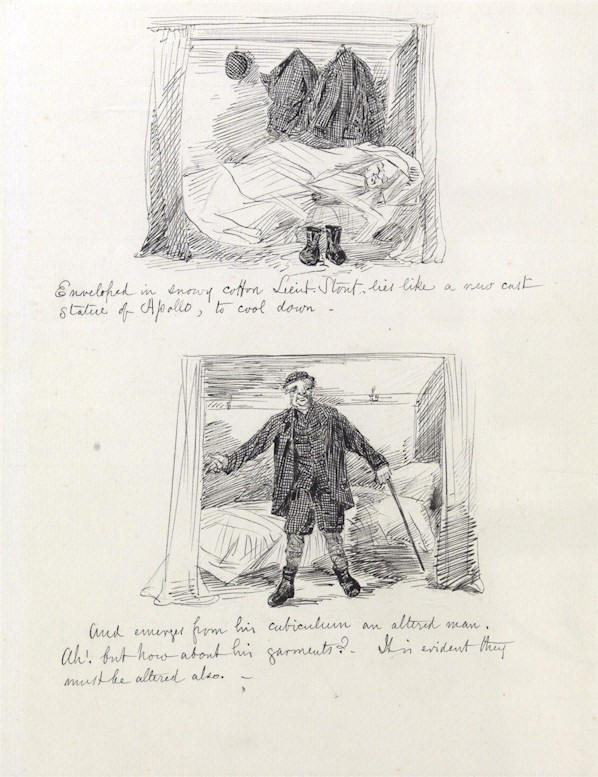 Enveloped in snowy cotton Lieut. Stout, lies like a new cast
statue of Apollo, to cool down -
And emerges from his cubiculum an altered man.
Ah! but how about his garments? - It is evident they
must be altered also. -